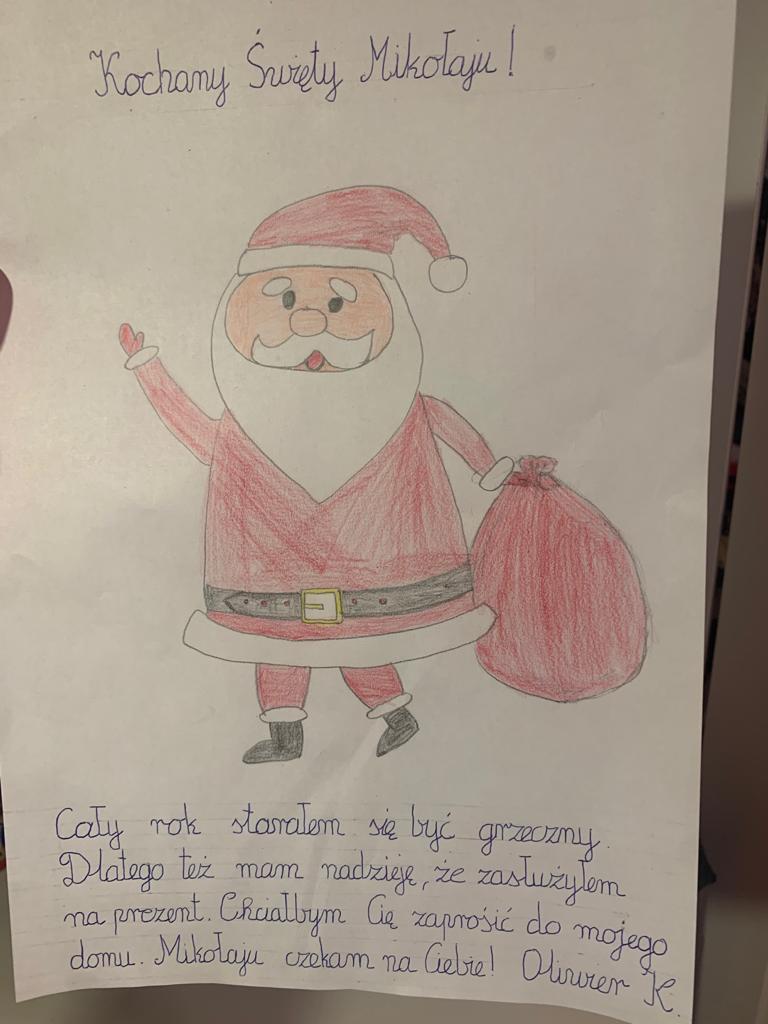 Kochany Święty Mikołaju!
Cały rok starałem się być grzeczny.
Dlatego też mam nadzieję, że zasłużyłem
na prezent. Chciałbym Cię zaprosić do mojego
domu. Mikołaju czekam na Ciebie! Oliwier K.